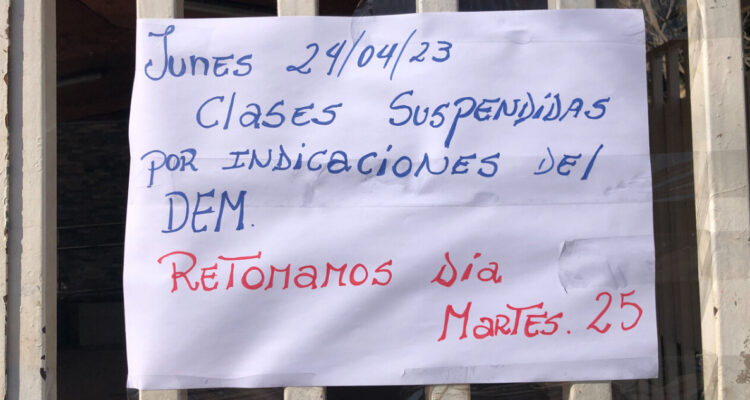 Lunes 24/04/23
Clases Suspendidas
por indicaciones del
DEM.
Retomamos día
Martes. 25